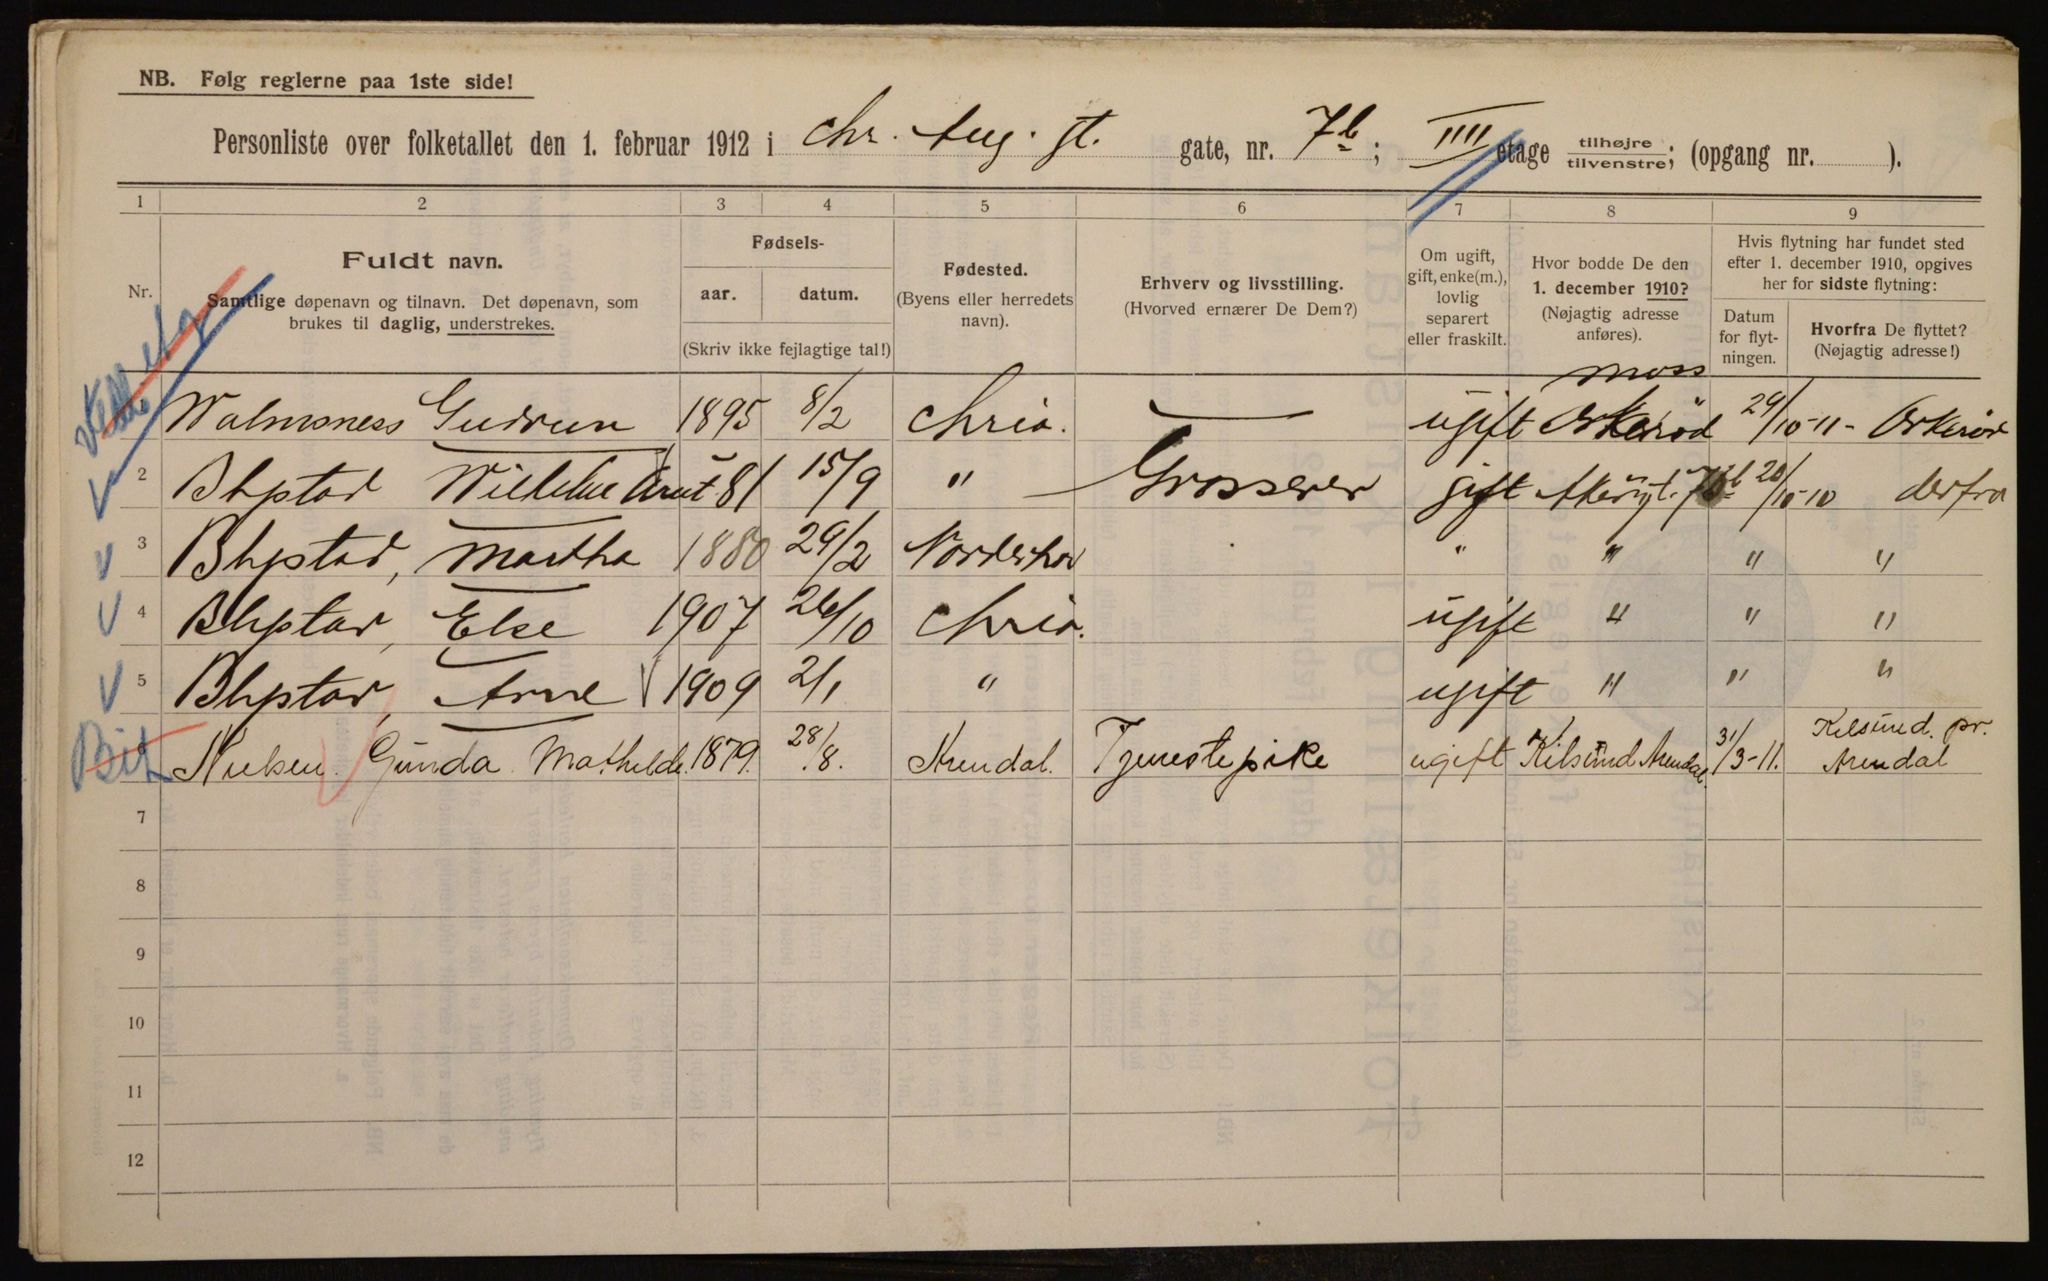 NB. Følg reglerne paa 1ste side!
Personliste over folketallet den 1. februar 1912 i Chr. Aug. gt. gate, nr. 7b; IIII etage tilhøjre/tilvenstre; (opgang nr. ).
1 2 3 4 5 6 7 8 9
Nr.
Fuldt navn.
Samtlige døpenavn og tilnavn. Det døpenavn, som
brukes til daglig, understrekes.
Fødsels-
aar. datum.
(Skriv ikke fejlagtige tal!)
Fødested.
(Byens eller herredets
navn).
Erhverv og livsstilling.
(Hvorved ernærer De Dem?)
Om ugift,
gift, enke(m.),
lovlig
separert
eller fraskilt.
Hvor bodde De den
1. december 1910?
(Nøjagtig adresse
anføres).
Hvis flytning har fundet sted
efter 1. december 1910, opgives
her for sidste flytning:
Datum
for flyt-
ningen.
Hvorfra De flyttet?
(Nøjagtig adresse!)
Moss
1 Walmsness Gudrun 1895 8/2 Chria. ugift Orkerød 29/10-11- Orkerød
2 Blystad 81 15/9 " Grosserer gift 20/10-10 derfra
3 Blystad, Martha 1880 29/2 Norderhov " " " "
4 Blystad, Else 1907 26/10 Chria. ugift " " "
5 Blystad, Arne 1909 2/1 " ugift " " "
6 Nielsen Gunda Mathilde 1879. 28/8. Arendal. Tjenestepike ugift Kilsund Arendal. 31/3-11. Kilsund. pr. Arendal
7
8
9
10
11
12